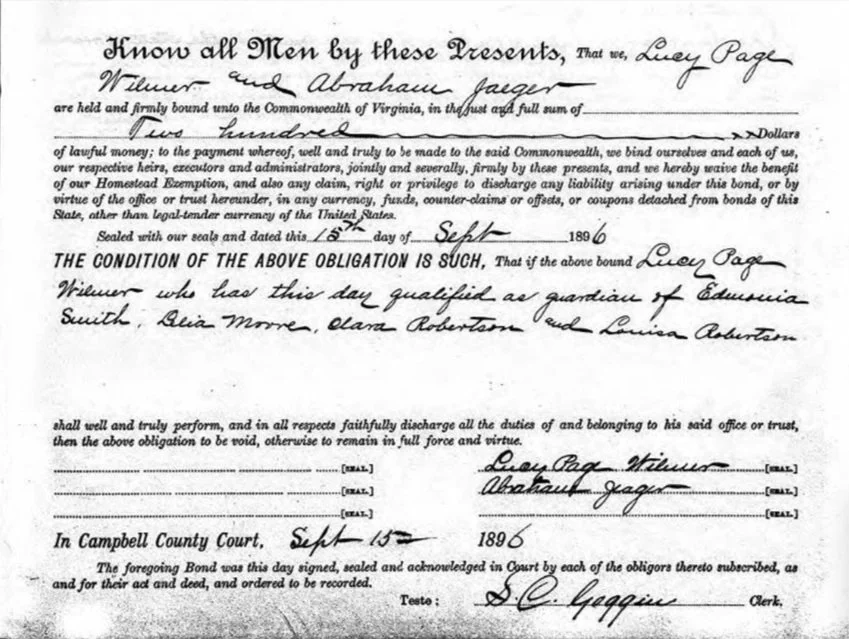 Know all Men by these Presents, That we, Lucy Page
Wilmer and Abraham Jaeger
are held and firmly bound unto the Commonwealth of Virginia, in the just and full sum of
Two hundred xx Dollars
of lawful money; to the payment whereof, well and truly to be made to the said Commonwealth, we bind ourselves and each of us,
our respective heirs, executors and administrators, jointly and severally, firmly by these presents, and we hereby waive the benefit
of our Homestead Exemption, and also any claim, right or privilege to discharge any liability arising under this bond, or by
virtue of the office or trust hereunder, in any currency, funds, counter-claims or offsets, or coupons detached from bonds of this
State, other than legal-tender currency of the United States.
Sealed with our seals and dated this 15th day of Sept 1896
THE CONDITION OF THE ABOVE OBLIGATION IS SUCH, That if the above bound Lucy Page
Wilmer who has this day qualified as guardian of Edmonia
Smith, Delia Moore, Clara Robertson and Louisa Robertson
shall well and truly perform, and in all respects faithfully discharge all the duties of and belonging to his said office or trust,
then the above obligation to be void, otherwise to remain in full force and virtue.
[SEAL.] Lucy Page Wilmer [SEAL.]
[SEAL.] Abraham Jeager [SEAL.]
[SEAL.] [SEAL.]
In Campbell County Court, Sept 15 1896
The foregoing Bond was this day signed, sealed and acknowledged in Court by each of the obligors thereto subscribed, as
and for their act and deed, and ordered to be recorded.
Teste: S. C. Goggin Clerk.